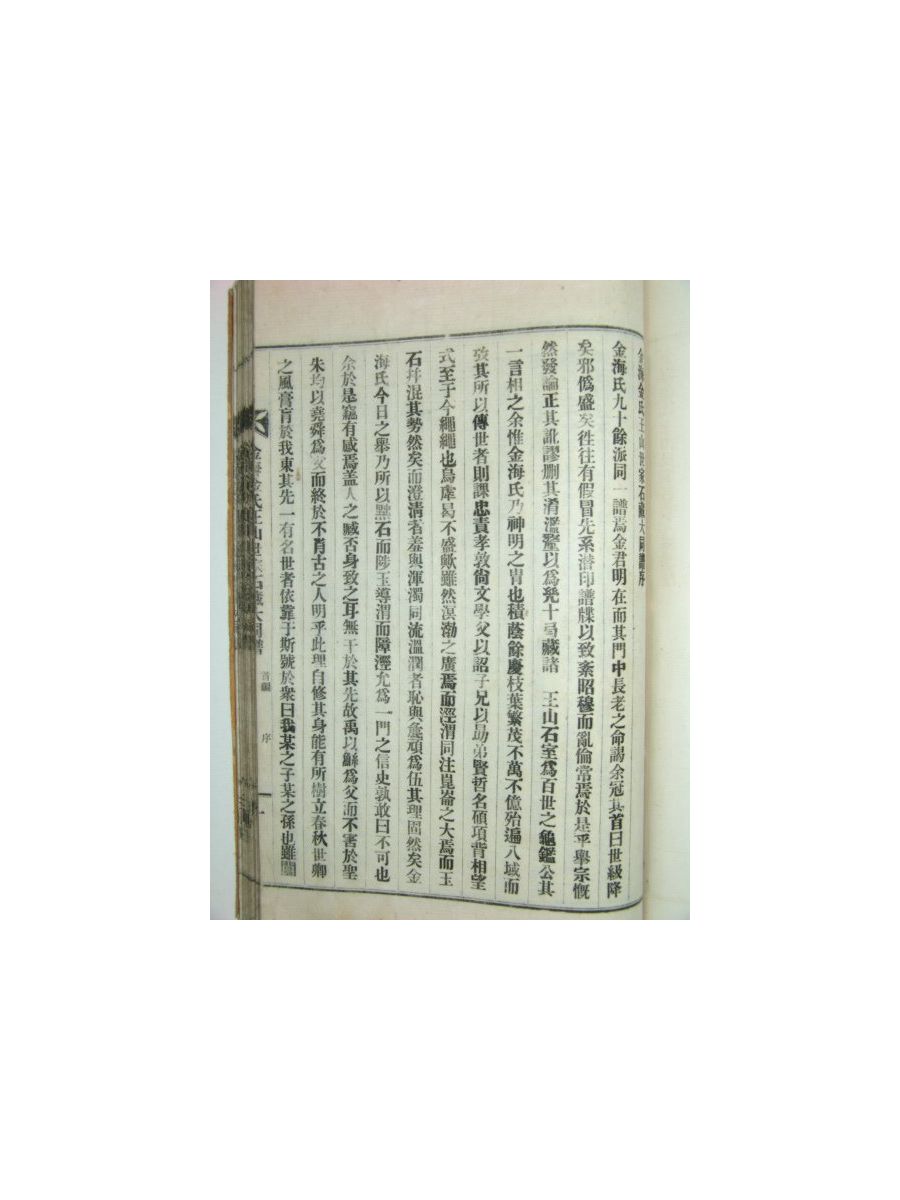 金海金氏王山世家石藏大同譜序
金海氏九十餘派同一譜焉金君明在而其門中長老之命謁余冠其首曰世級降
矣邪僞盛矣徃徃有假冒先系濳印譜牒以致紊昭穆而亂倫常焉於是乎舉宗慨
然發論正其訛謬删其淆濫鏧以爲凳十咼藏諸 王山石室爲百世之龜鑑公其
一言相之余惟金海氏乃神明之胄也積蔭餘慶枝葉繁茂不萬不億殆遍八域而
攷其所以傳世者則課忠責孝敦尙文學父以詔子兄以勗弟賢哲名碩項背相望
式至于今繩繩也烏虖曷不盛歟雖然溟渤之廣焉而涇渭同注崑崙之大焉而玉
石幷混其勢然矣而澄淸者羞與渾濁同流溫潤者恥與麄頑爲伍其理固然矣金
海氏今日之舉乃所以黜石而陟玉導渭而障涇允爲一門之信史孰敢曰不可也
余於是竊有感焉盖人之臧否身致之耳無干於其先故禹以鯀爲父而不害於聖
朱均以堯舜爲父而終於不肖古之人明乎此理自修其身能有所樹立春秋世卿
之風膏肓於我東其先一有名世者依靠于斯號於衆曰我某之子某之孫也雖闒
金海金氏王山世家石藏大同譜 首編 序 一